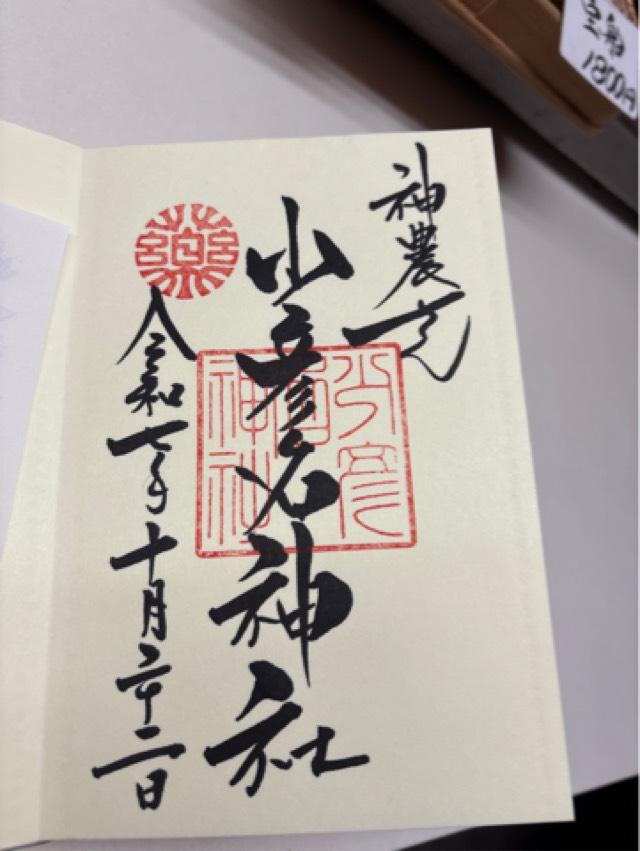 神農さん
少彦名神社
令和七年十月二十二日
藥
少彦
名
神社
1800円